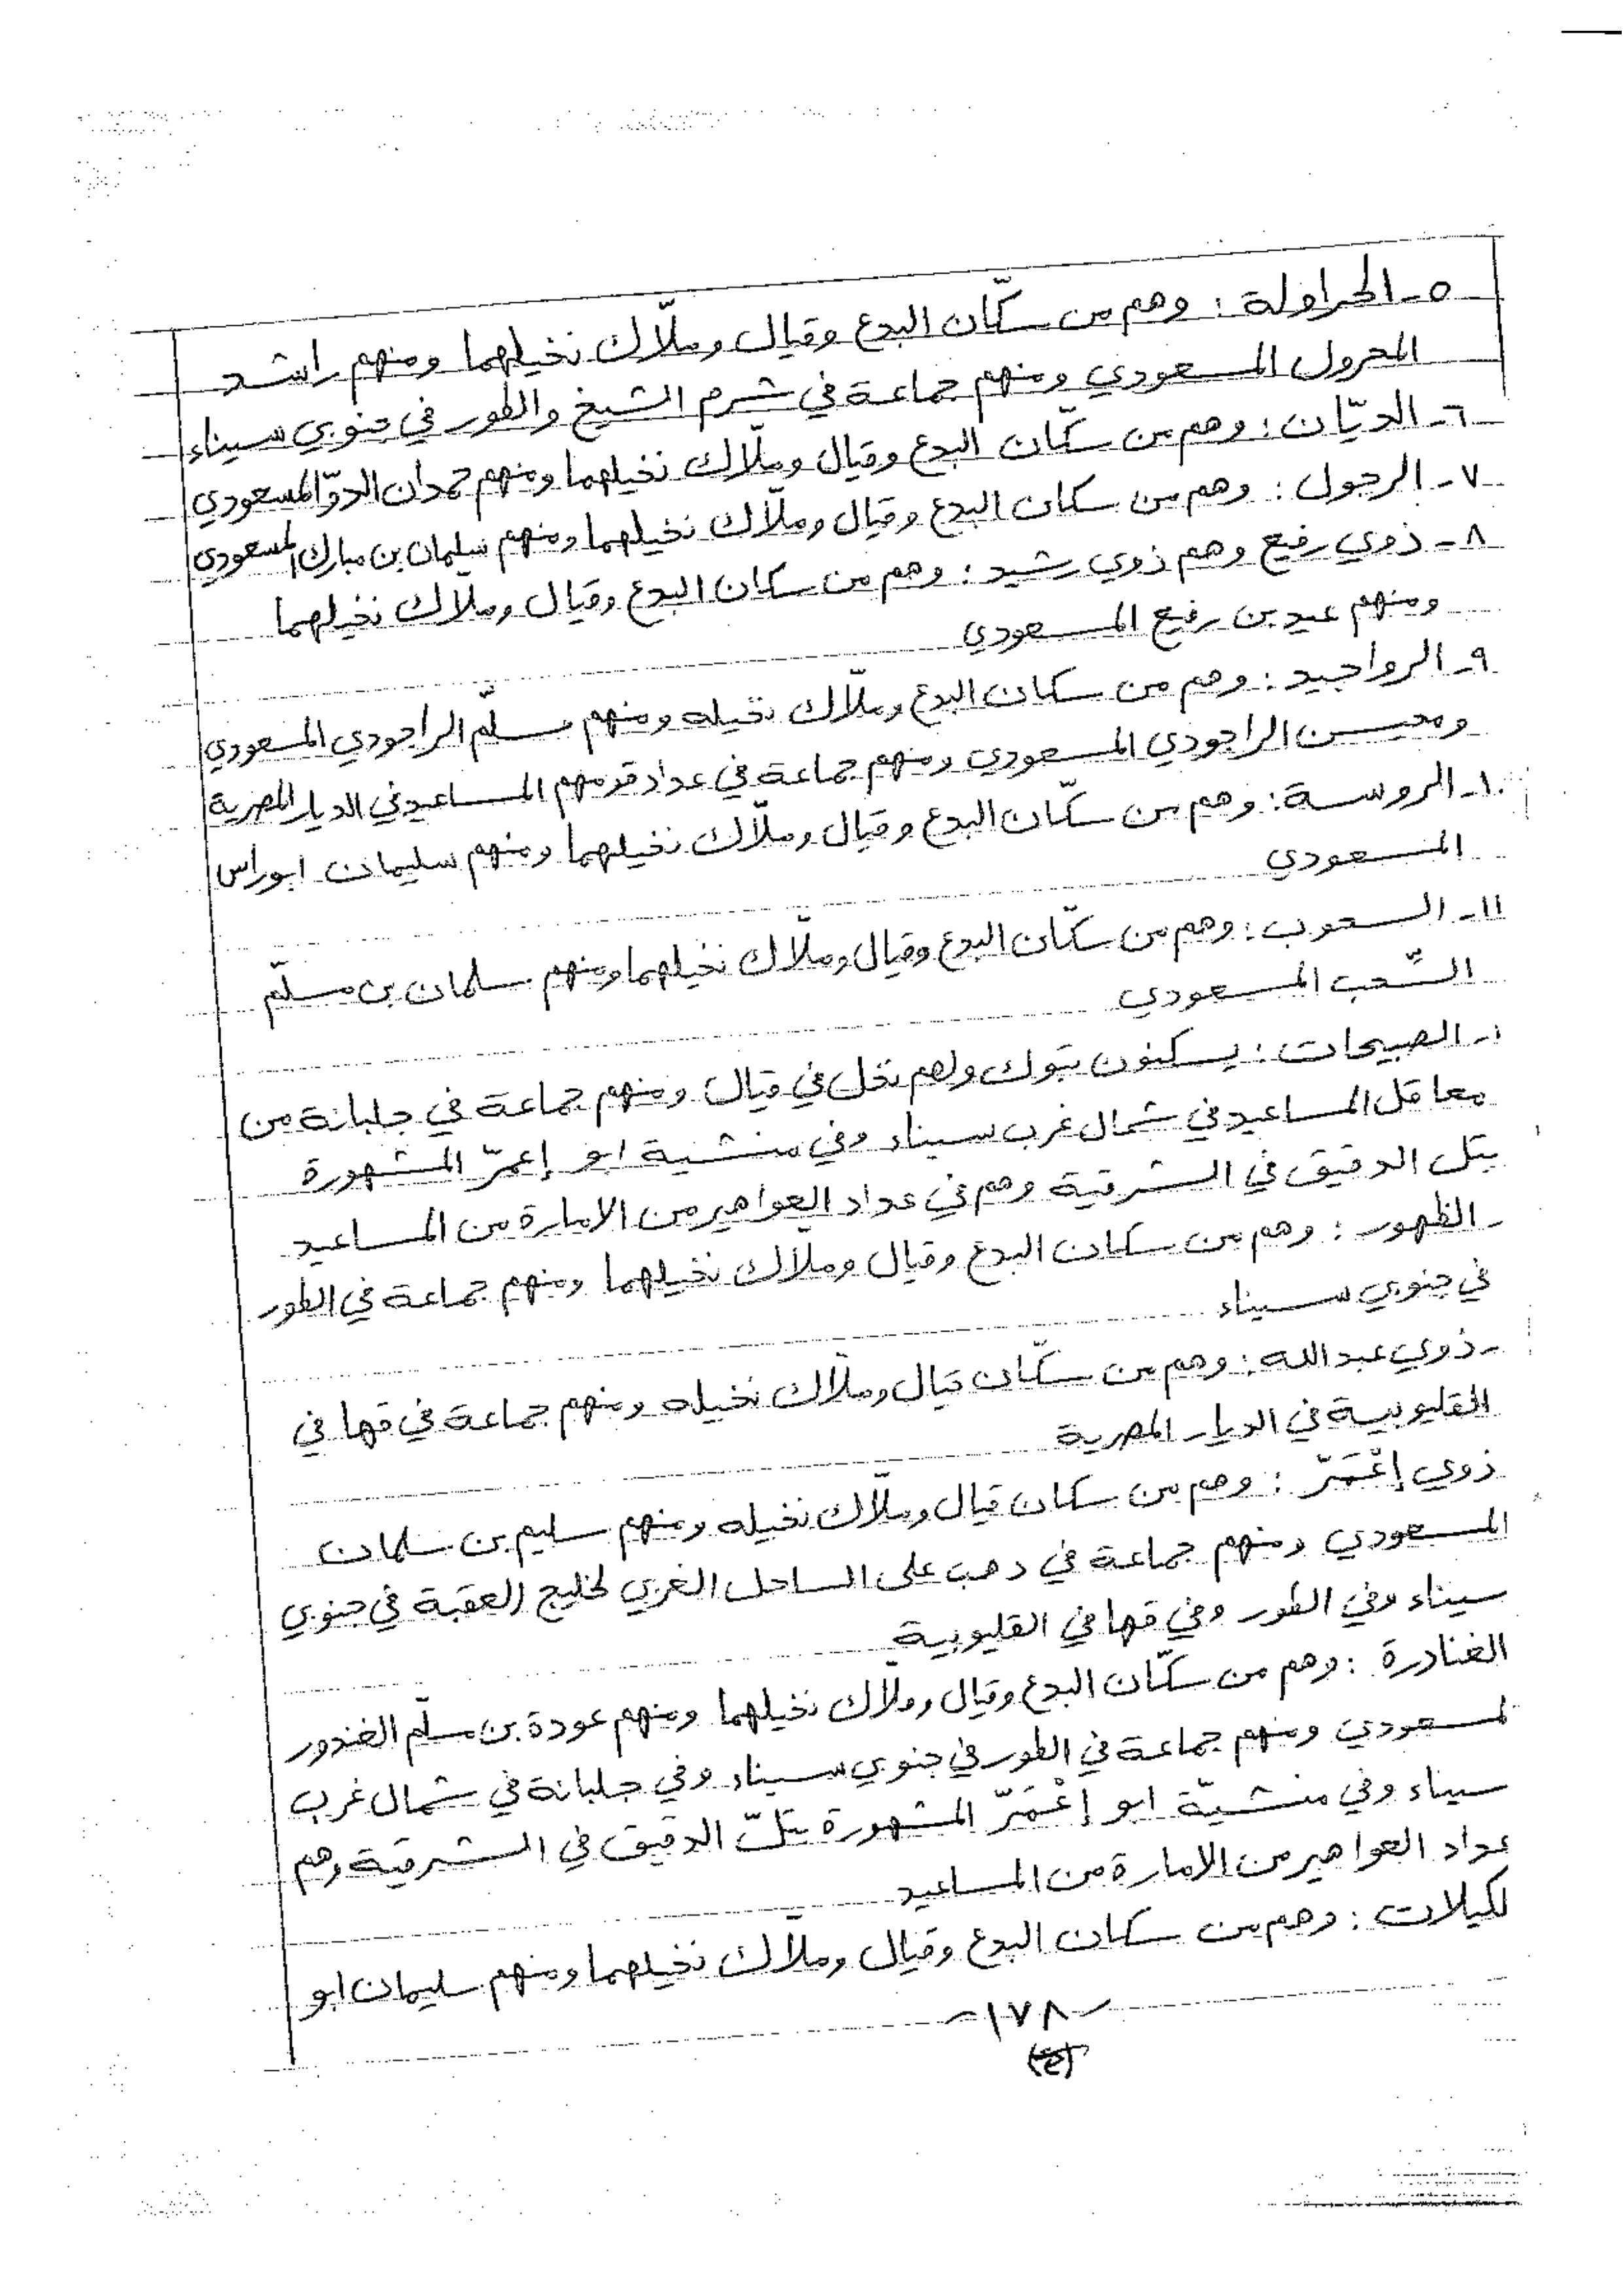 ٥- الحراولة : وهم من سكّان البدع وقيال وملّاك نخيلهما ومنهم راشد
المحرول المسعودي ومنهم جماعة في شرم الشيخ والطور في جنوبي سيناء
٦- الديّان : وهم من سكّان البدع وقيال وملّاك نخيلهما ومنهم حمدان الدوّ المسعودي
٧- الرجول : وهم من سكان البدع وقيال وملّاك نخيلهما ومنهم سليمان بن مبارك المسعودي
٨- ذوي رفيع وهم ذوي رشيد : وهم من سكان البدع وقيال وملّاك نخيلهما
ومنهم عيد بن رفيع المسعودي
٩- الرواجيد : وهم من سكان البدع وملّاك نخيله ومنهم مسلّم الراجودي المسعودي
ومحيسن الراجودي المسعودي ومنهم جماعة في عداد قومهم المساعيد في الديار المصرية
١٠- الروسة : وهم من سكّان البدع وقيال وملّاك نخيلهما ومنهم سليمان ابو راس
المسعودي
١١- السحوب : وهم من سكّان البدع وقيال وملّاك نخيلهما ومنهم سلمان بن مسلّم
السّحب المسعودي
١- الصبيحات : يسكنون تبوك ولهم نخل في قيال ومنهم جماعة في جلبانة من
معاقل المساعيد في شمال غرب سيناء وفي منشية ابو إعمرّ المشهورة
بتل الدقيق في الشرقية وهم في عداد العواهير من الامارة من المساعيد
- الظهور : وهم من سكان البدع وقيال وملّاك نخيلهما ومنهم جماعة في الطور
في جنوبي سيناء
- ذوي عبدالله : وهم من سكّان قيال وملّاك نخيله ومنهم جماعة في قها في
القليوبية في الديار المصرية
ذوي إعْمَرّ : وهم من سكان قيال وملّاك نخيله ومنهم سليم بن سلمان
المسعودي ومنهم جماعة في دهب على الساحل الغربي لخليج العقبة في جنوبي
سيناء وفي الطور وفي قها في القليوبية
الغنادرة : وهم من سكّان البدع وقيال وملّاك نخيلهما ومنهم عودة بن مسلّم الغندور
لمسعودي ومنهم جماعة في الطور في جنوبي سيناء وفي جلبانة في شمال غرب
سيناء وفي منشيّة ابو إعْمَرّ المشهورة بتلّ الدقيق في الشرقية وهم
عداد العواهير من الامارة من المساعيد
لكيلات : وهم من سكان البدع وقيال وملّاك نخيلهما ومنهم سليمان ابو
~ ١٧٨ ~